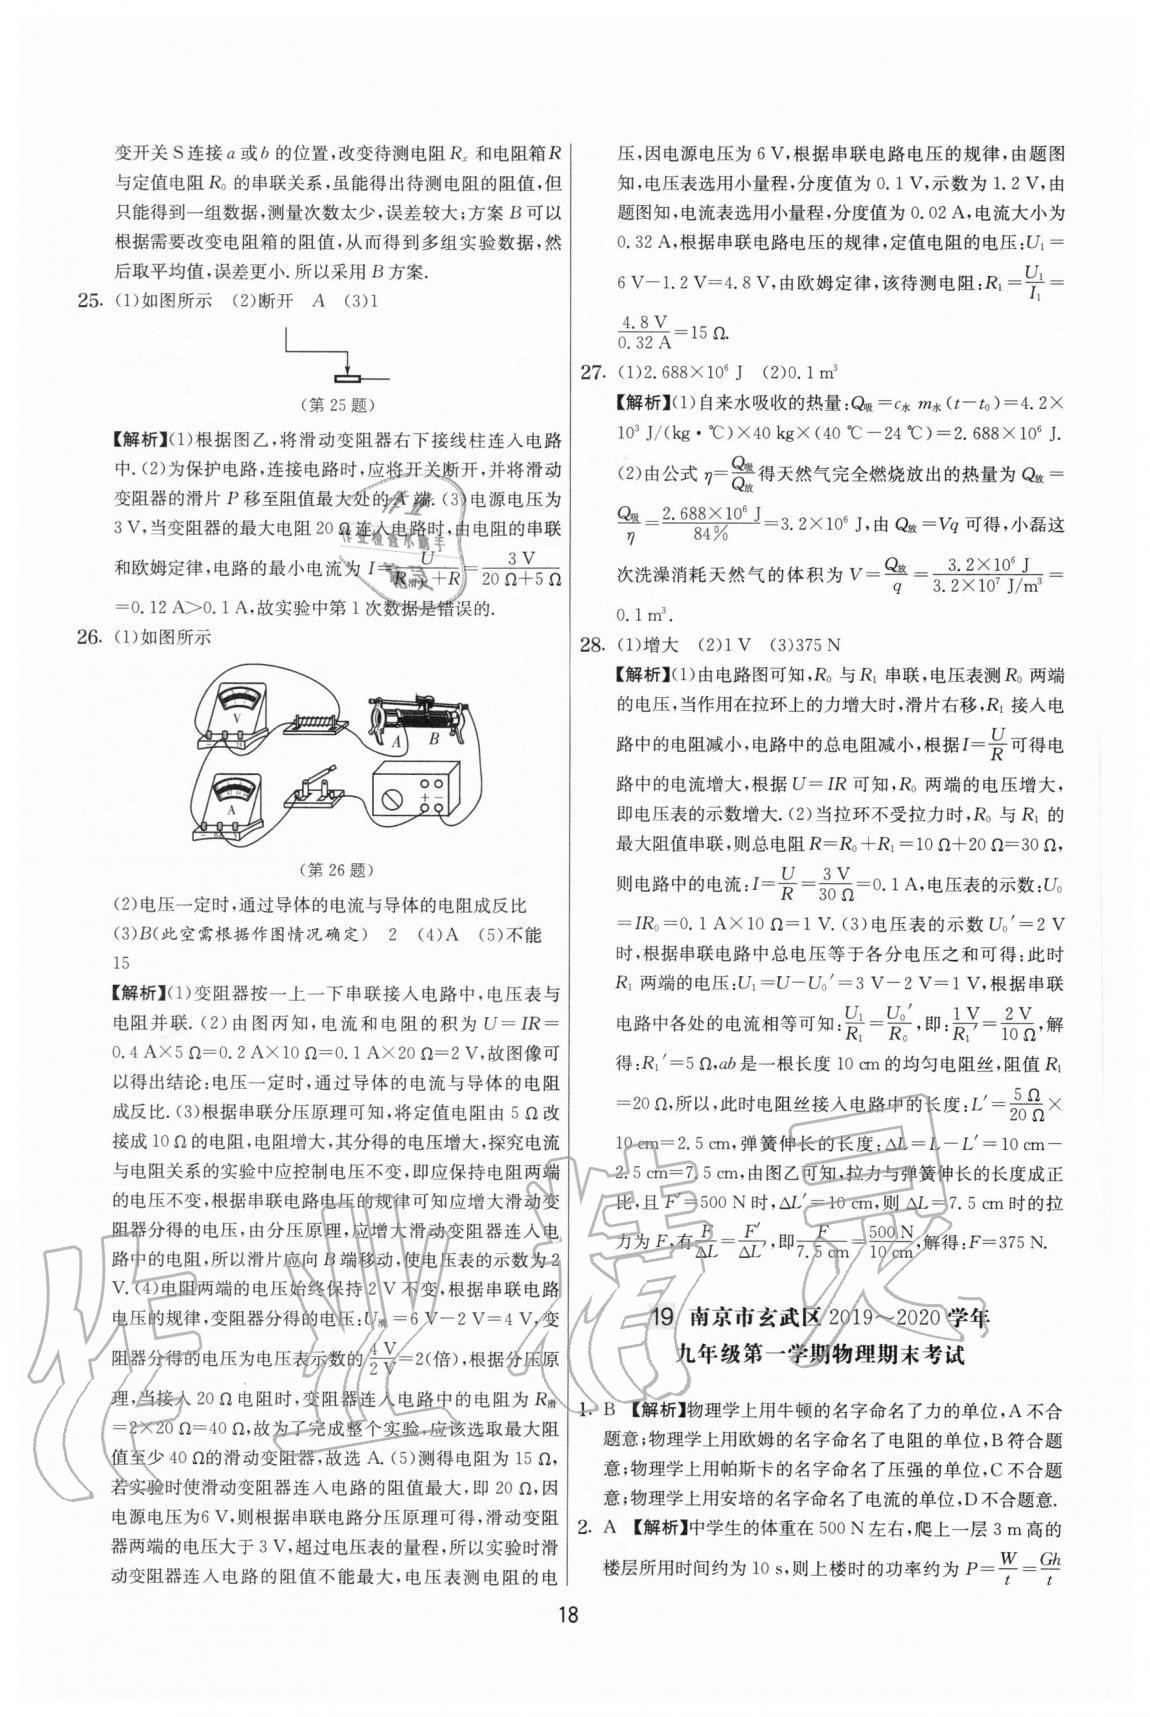 变开关 S 连接 a 或 b 的位置,改变待测电阻 Rₓ 和电阻箱 R
与定值电阻 R₀ 的串联关系,虽能得出待测电阻的阻值,但
只能得到一组数据,测量次数太少,误差较大;方案 B 可以
根据需要改变电阻箱的阻值,从而得到多组实验数据,然
后取平均值,误差更小. 所以采用 B 方案.
25. (1)如图所示 (2)断开 A (3)1
(第 25 题)
【解析】(1)根据图乙,将滑动变阻器右下接线柱连入电路
中. (2)为保护电路,连接电路时,应将开关断开,并将滑动
变阻器的滑片 P 移至阻值最大处的 A 端. (3)电源电压为
3 V,当变阻器的最大电阻 20 Ω 连入电路时,由电阻的串联
和欧姆定律,电路的最小电流为 I=U/(R滑大+R)=3 V/(20 Ω+5 Ω)
=0.12 A>0.1 A,故实验中第 1 次数据是错误的.
26. (1)如图所示
V A B
A + −
(第 26 题)
(2)电压一定时,通过导体的电流与导体的电阻成反比
(3)B(此空需根据作图情况确定) 2 (4)A (5)不能
15
【解析】(1)变阻器按一上一下串联接入电路中,电压表与
电阻并联. (2)由图丙知,电流和电阻的积为 U=IR=
0.4 A×5 Ω=0.2 A×10 Ω=0.1 A×20 Ω=2 V,故图像可
以得出结论:电压一定时,通过导体的电流与导体的电阻
成反比. (3)根据串联分压原理可知,将定值电阻由 5 Ω 改
接成 10 Ω 的电阻,电阻增大,其分得的电压增大,探究电流
与电阻关系的实验中应控制电压不变,即应保持电阻两端
的电压不变,根据串联电路电压的规律可知应增大滑动变
阻器分得的电压,由分压原理,应增大滑动变阻器连入电
路中的电阻,所以滑片应向 B 端移动,使电压表的示数为 2
V. (4)电阻两端的电压始终保持 2 V 不变,根据串联电路
电压的规律,变阻器分得的电压:U滑=6 V−2 V=4 V,变
阻器分得的电压为电压表示数的 4 V/2 V=2(倍),根据分压原
理,当接入 20 Ω 电阻时,变阻器连入电路中的电阻为 R滑
=2×20 Ω=40 Ω,故为了完成整个实验,应该选取最大阻
值至少 40 Ω的滑动变阻器,故选 A. (5)测得电阻为 15 Ω,
若实验时使滑动变阻器连入电路的阻值最大,即 20 Ω,因
电源电压为6 V,则根据串联电路分压规律可得,滑动变阻
器两端的电压大于 3 V,超过电压表的量程,所以实验时滑
动变阻器连入电路的阻值不能最大,电压表测电阻的电
压,因电源电压为 6 V,根据串联电路电压的规律,由题图
知,电压表选用小量程,分度值为 0.1 V,示数为 1.2 V,由
题图知,电流表选用小量程,分度值为 0.02 A,电流大小为
0.32 A,根据串联电路电压的规律,定值电阻的电压:U₁=
6 V−1.2 V=4.8 V,由欧姆定律,该待测电阻:R₁=U₁/I₁=
4.8 V/0.32 A=15 Ω.
27. (1)2.688×10⁶ J (2)0.1 m³
【解析】(1)自来水吸收的热量:Q吸=c水 m水(t−t₀)=4.2×
10³ J/(kg·℃)×40 kg×(40 ℃−24 ℃)=2.688×10⁶ J.
(2)由公式 η=Q吸/Q放得天然气完全燃烧放出的热量为 Q放=
Q吸/η=2.688×10⁶ J/84%=3.2×10⁶ J,由 Q放=Vq 可得,小磊这
次洗澡消耗天然气的体积为 V=Q放/q=3.2×10⁶ J/3.2×10⁷ J/m³=
0.1 m³.
28. (1)增大 (2)1 V (3)375 N
【解析】(1)由电路图可知,R₀ 与 R₁ 串联,电压表测 R₀ 两端
的电压,当作用在拉环上的力增大时,滑片右移,R₁ 接入电
路中的电阻减小,电路中的总电阻减小,根据 I=U/R可得电
路中的电流增大,根据 U=IR 可知,R₀ 两端的电压增大,
即电压表的示数增大. (2)当拉环不受拉力时,R₀ 与 R₁ 的
最大阻值串联,则总电阻 R=R₀+R₁=10 Ω+20 Ω=30 Ω,
则电路中的电流:I=U/R=3 V/30 Ω=0.1 A,电压表的示数:U₀
=IR₀=0.1 A×10 Ω=1 V. (3)电压表的示数 U₀′=2 V
时,根据串联电路中总电压等于各分电压之和可得:此时
R₁ 两端的电压:U₁=U−U₀′=3 V−2 V=1 V,根据串联
电路中各处的电流相等可知:U₁/R₁′=U₀′/R₀,即:1 V/R₁′=2 V/10 Ω,解
得:R₁′=5 Ω,ab 是一根长度 10 cm 的均匀电阻丝,阻值 R₁
=20 Ω,所以,此时电阻丝接入电路中的长度:L′=5 Ω/20 Ω×
10 cm=2.5 cm,弹簧伸长的长度:ΔL=L−L′=10 cm−
2.5 cm=7.5 cm,由图乙可知,拉力与弹簧伸长的长度成正
比,且 F′=500 N 时,ΔL′=10 cm,则 ΔL=7.5 cm 时的拉
力为 F,有F/ΔL=F′/ΔL′,即F/7.5 cm=500 N/10 cm,解得:F=375 N.
19 南京市玄武区 2019~2020 学年
九年级第一学期物理期末考试
1. B 【解析】物理学上用牛顿的名字命名了力的单位,A 不合
题意;物理学上用欧姆的名字命名了电阻的单位,B 符合题
意;物理学上用帕斯卡的名字命名了压强的单位,C 不合题
意;物理学上用安培的名字命名了电流的单位,D 不合题意.
2. A 【解析】中学生的体重在 500 N 左右,爬上一层 3 m 高的
楼层所用时间约为 10 s,则上楼时的功率约为 P=W/t=Gh/t
18
作业精灵